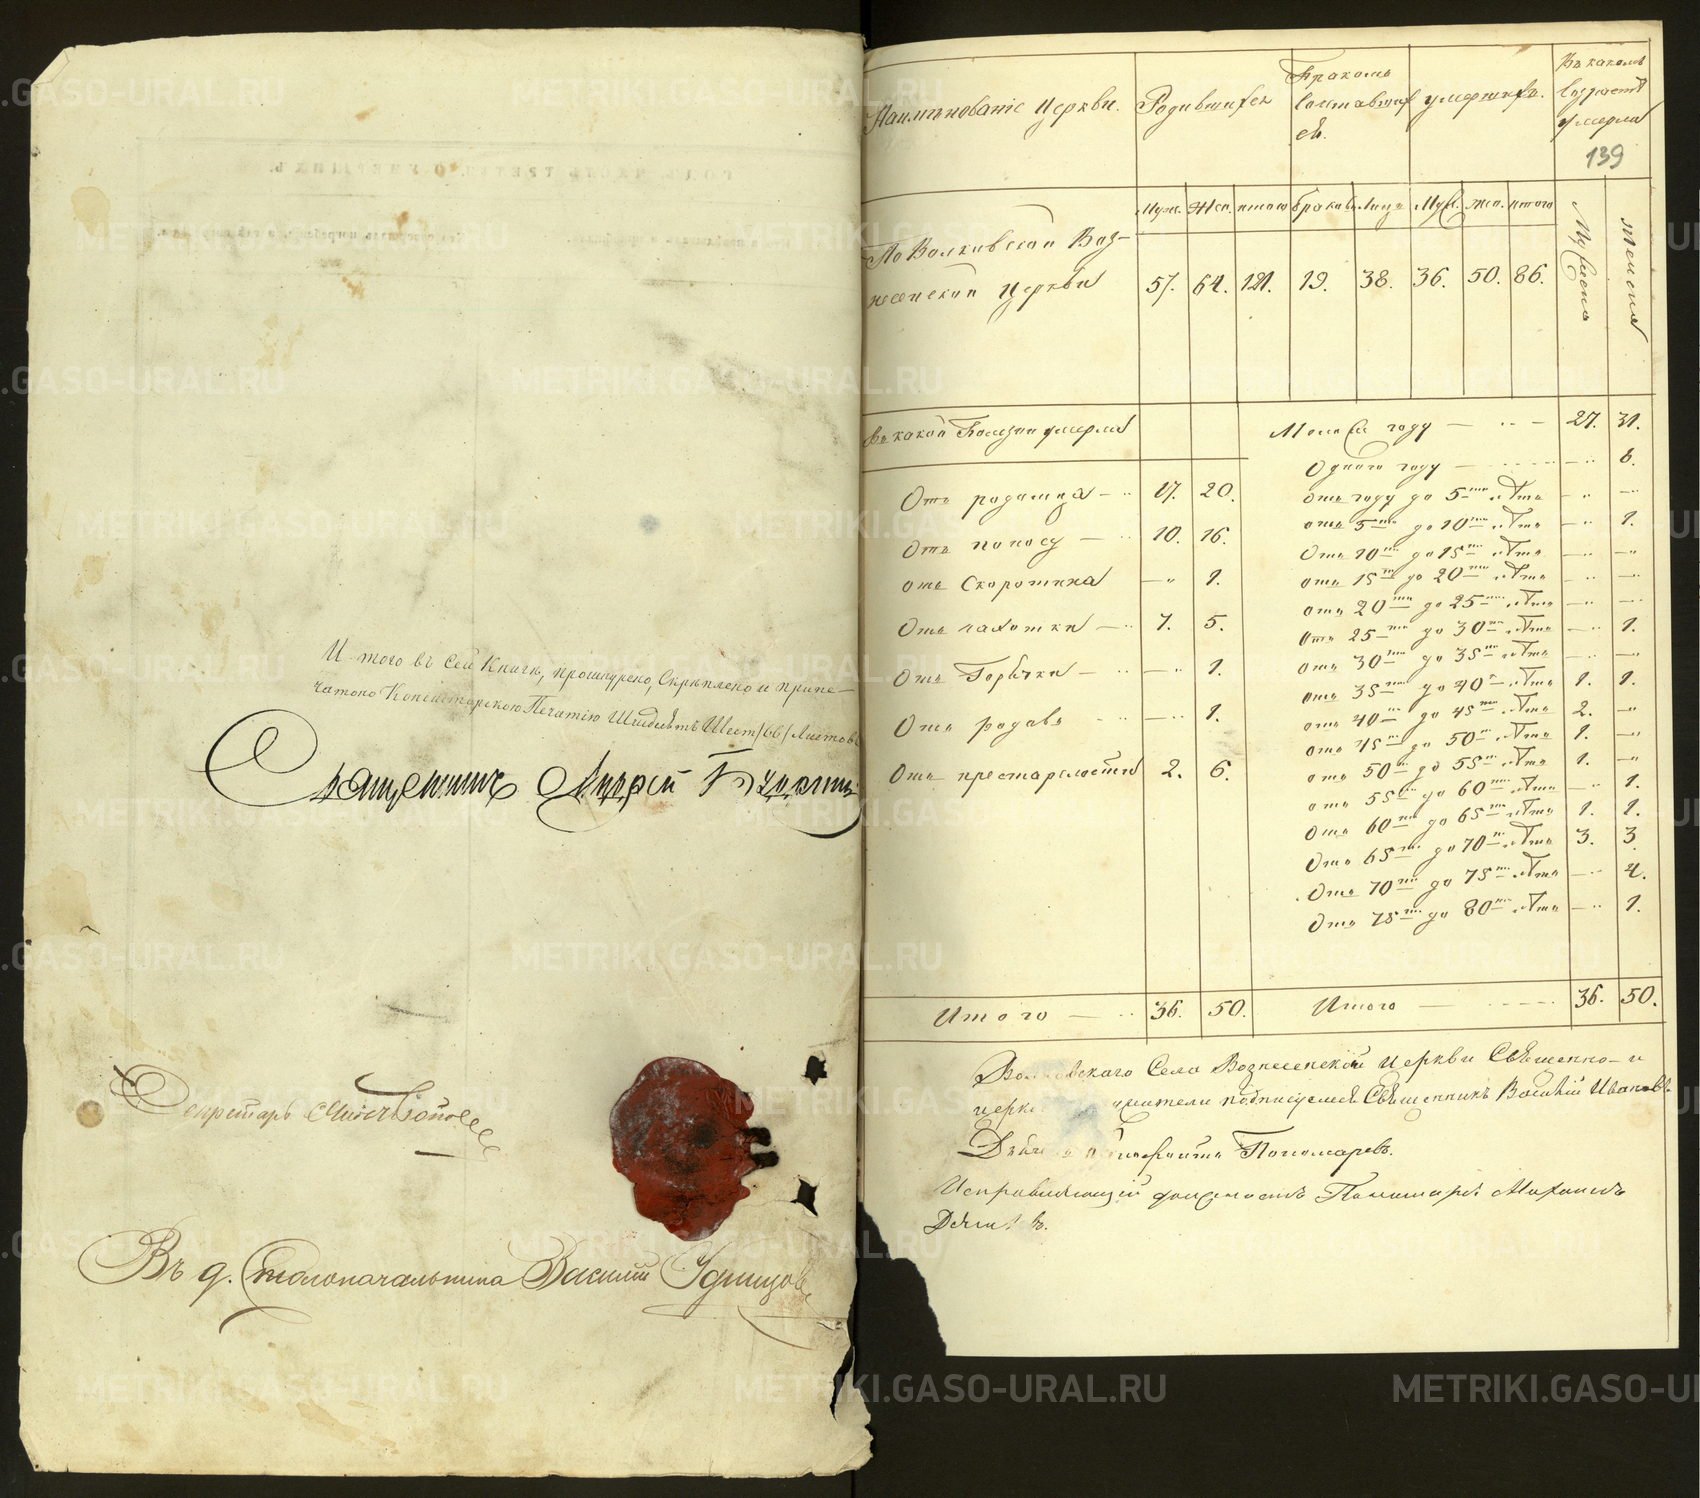 И того въ сей Книгѣ, прошнурено, Скрѣплено и припе-
чатоно Консисторскою Печатію Шисдѣсятъ Шест /66/ Листовъ
Священникъ Андрей
Секретарь
Въ д. Столоначальника Василий Удинцов
139
Наименованіе Церкви. Родившихся Бракомъ сочтавшихся. умершихъ. Въ какомъ возрасте умерли
Муж. Жен. итого браковъ Лица Муж. Жен. итого Мужеска женска
По Волковской Воз-
несенской Церкви 57. 64. 121. 19. 38. 36. 50. 86.
Въ какой Болезни умерли
Отъ родимца 17. 20.
Отъ поносу 10. 16.
отъ Скоротика 1.
Отъ чахотки 7. 5.
Отъ Горячки 1.
Отъ родовъ 1.
Отъ престарелости 2. 6.
Итого 36. 50.
Мене Си году 27. 31.
Одного году 6.
отъ году до 5ти лѣтъ
отъ 5ти до 10ти лѣтъ 1.
Отъ 10ти до 15ти лѣтъ
отъ 15ти до 20ти лѣтъ
отъ 20ти до 25ти лѣтъ
Отъ 25ти до 30ти лѣтъ 1.
отъ 30ти до 35ти лѣтъ
отъ 35ти до 40ти лѣтъ 1. 1.
отъ 40ти до 45ти лѣтъ 2.
отъ 45ти до 50ти лѣтъ 1.
отъ 50ти до 55ти лѣтъ 1.
отъ 55ти до 60ти лѣтъ 1.
Отъ 60ти до 65ти лѣтъ 1. 1.
Отъ 65ти до 70ти лѣтъ 3. 3.
Отъ 70ти до 75ти лѣтъ 4.
Отъ 75ти до 80ти лѣтъ 1.
Итого 36. 50.
Села Вознесенской Церкви Священно- и
подписуемся Священникъ Василий Ивановъ
Пономаревъ.
Исправляющій должность Пономаря
METRIKI.GASO-URAL.RU